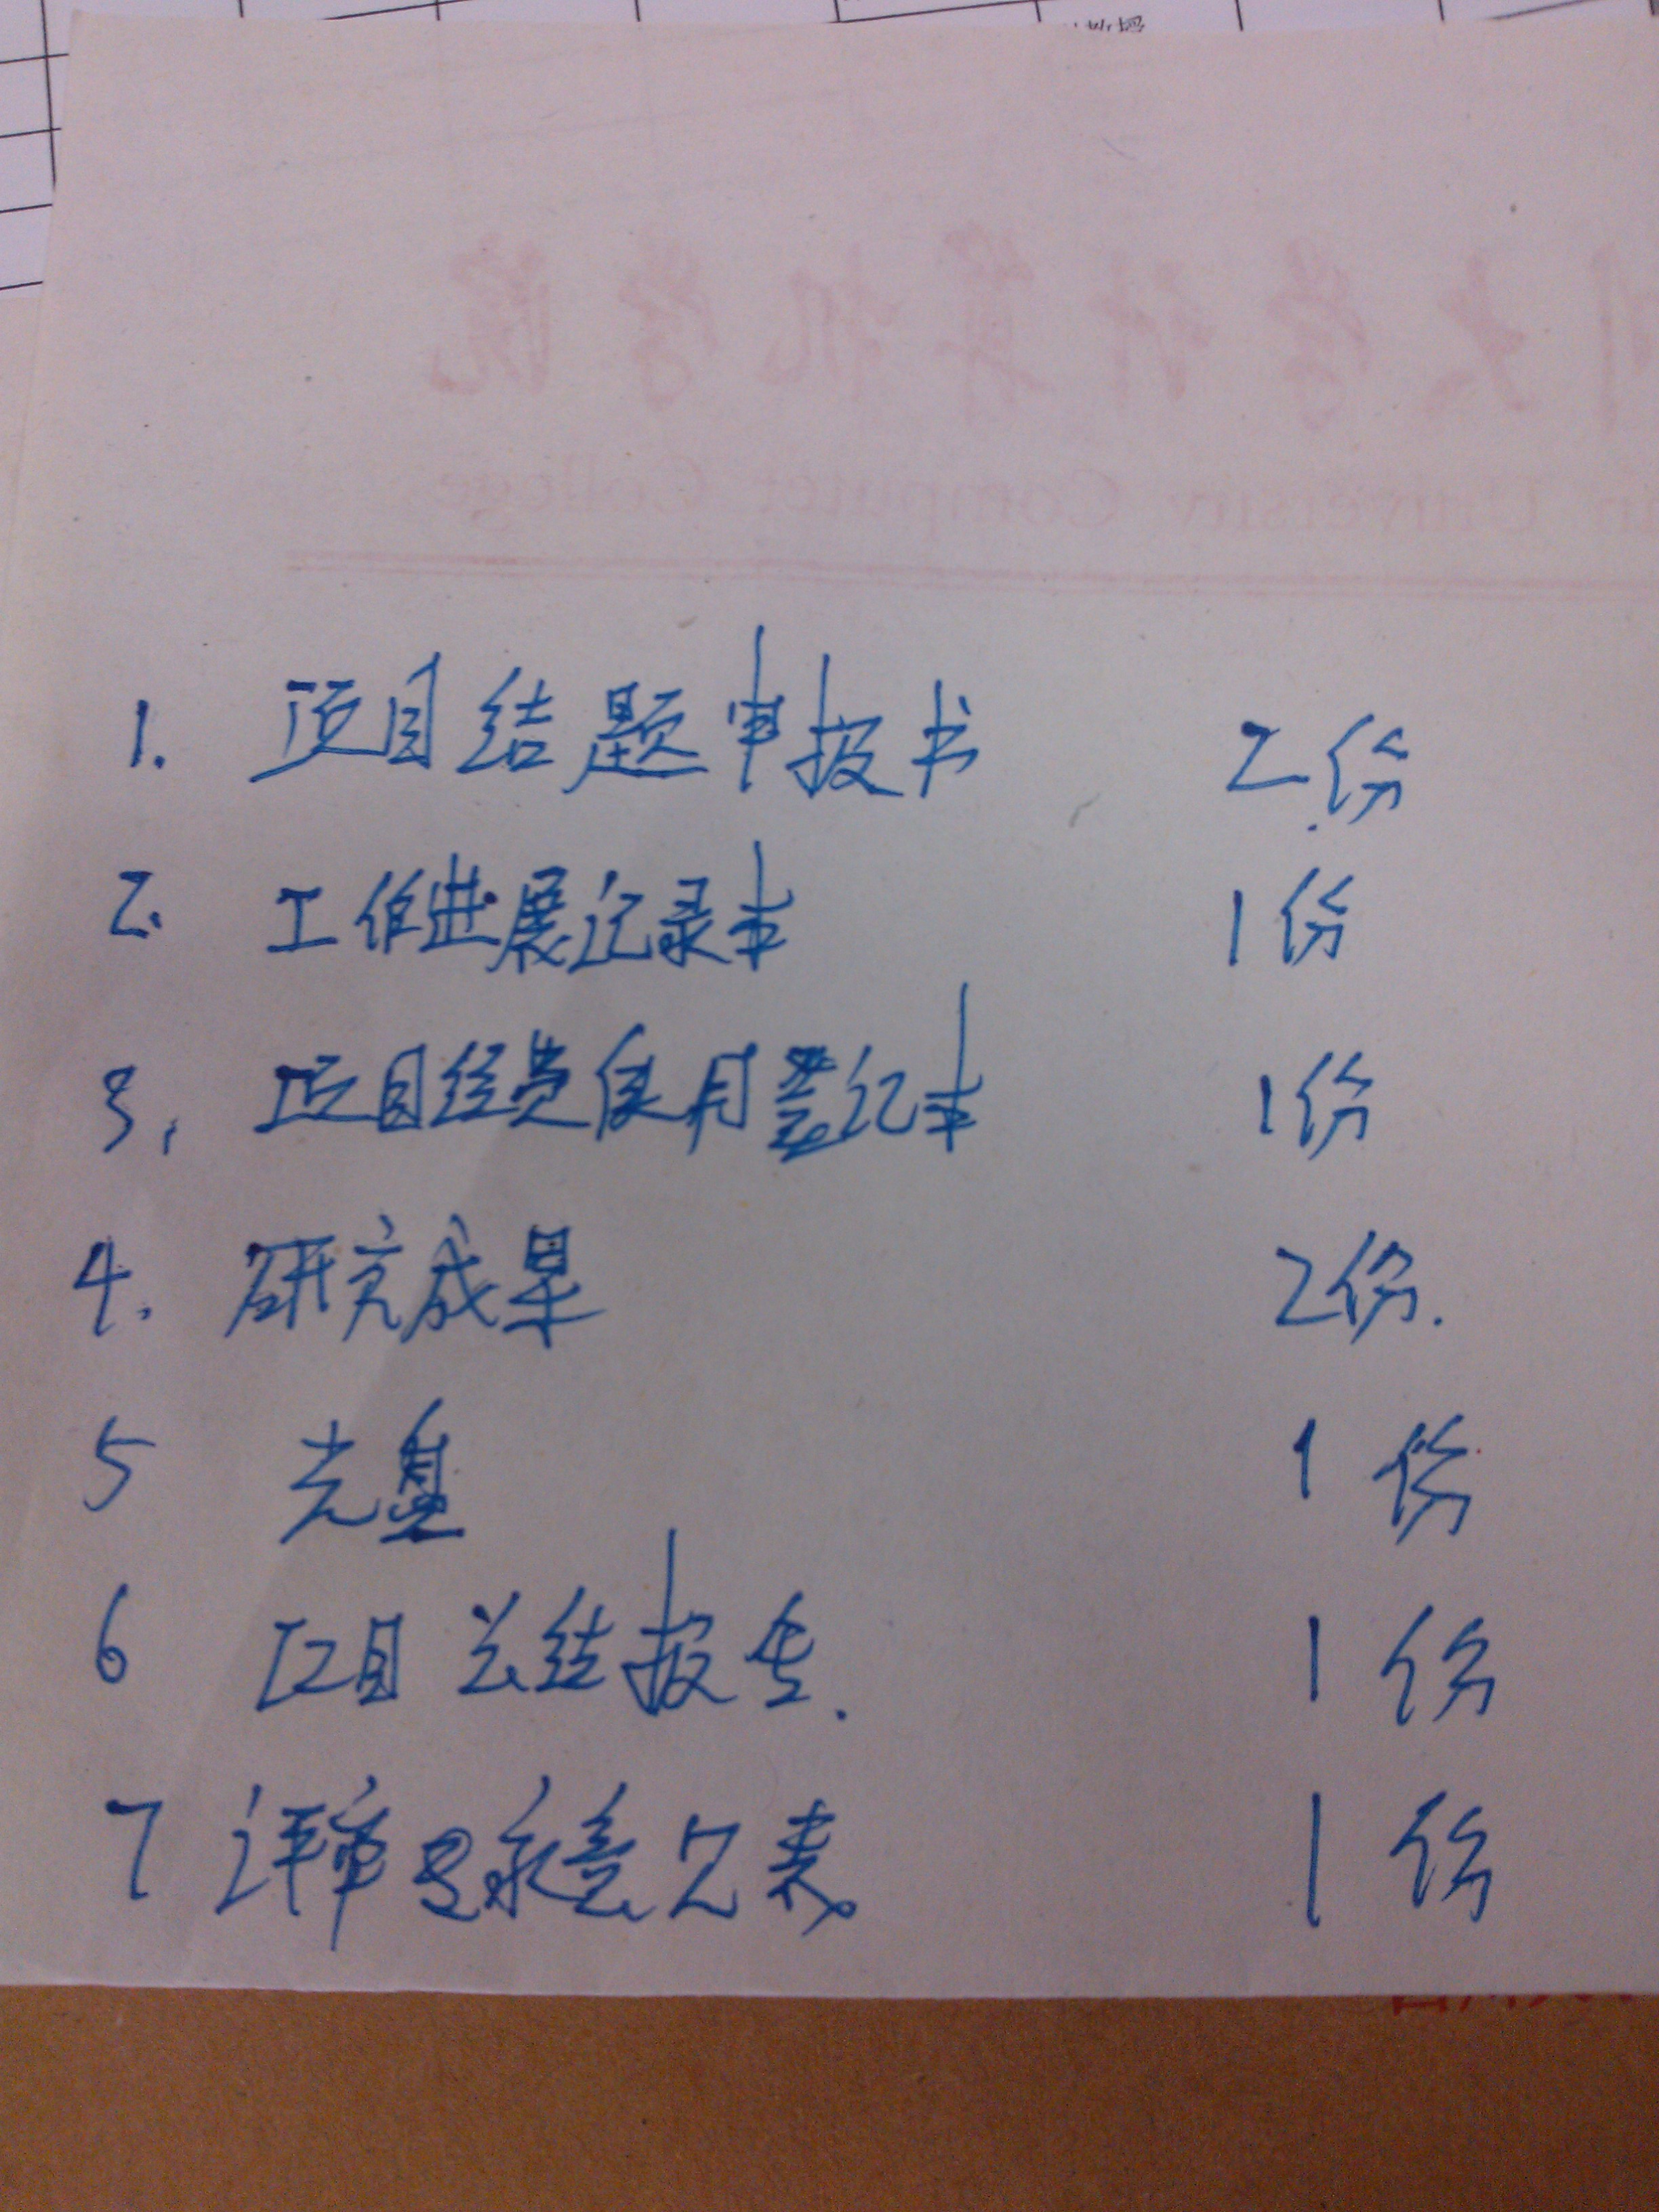 1. 项目结题申报书 2份
2. 工作进展记录本 1份
3. 项目经费使用登记本 1份
4. 研究成果 2份.
5 光盘 1份
6 项目总结报告. 1份
7 评审专家意见表 1份